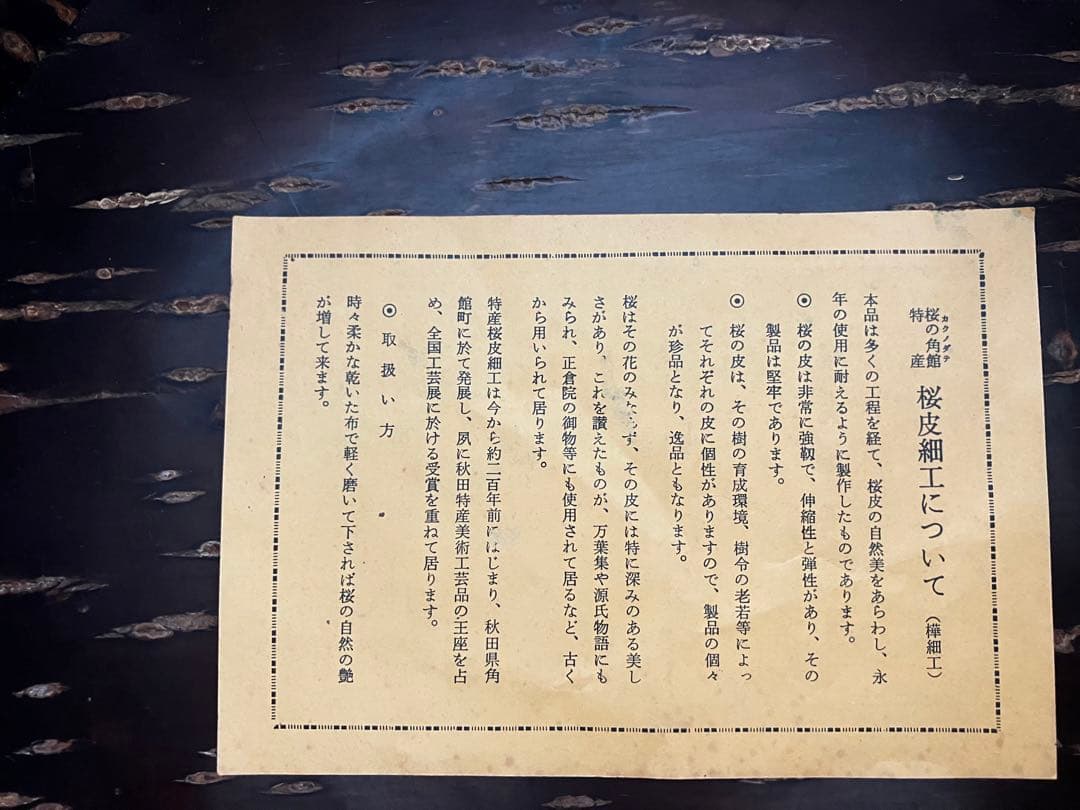 桜の角館
カクノダテ
特産
桜皮細工について（樺細工）
本品は多くの工程を経て、桜皮の自然美をあらわし、永
年の使用に耐えるように製作したものであります。
◉ 桜の皮は非常に強靱で、伸縮性と弾性があり、その
製品は堅牢であります。
◉ 桜の皮は、その樹の育成環境、樹令の老若等によっ
てそれぞれの皮に個性がありますので、製品の個々
が珍品となり、逸品ともなります。
桜はその花のみならず、その皮には特に深みのある美し
さがあり、これを讃えたものが、万葉集や源氏物語にも
みられ、正倉院の御物等にも使用されて居るなど、古く
から用いられて居ります。
特産桜皮細工は今から約二百年前にはじまり、秋田県角
館町に於て発展し、夙に秋田特産美術工芸品の王座を占
め、全国工芸展に於ける受賞を重ねて居ります。
◉ 取扱い方
時々柔かな乾いた布で軽く磨いて下されば桜の自然の艶
が増して来ます。